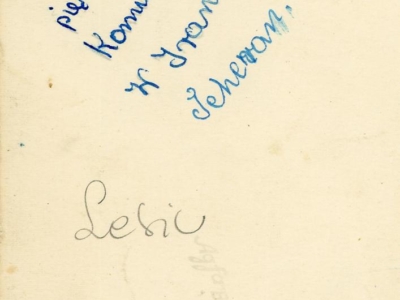 pię
Komu
W Iran
Teheran.
Lesiu